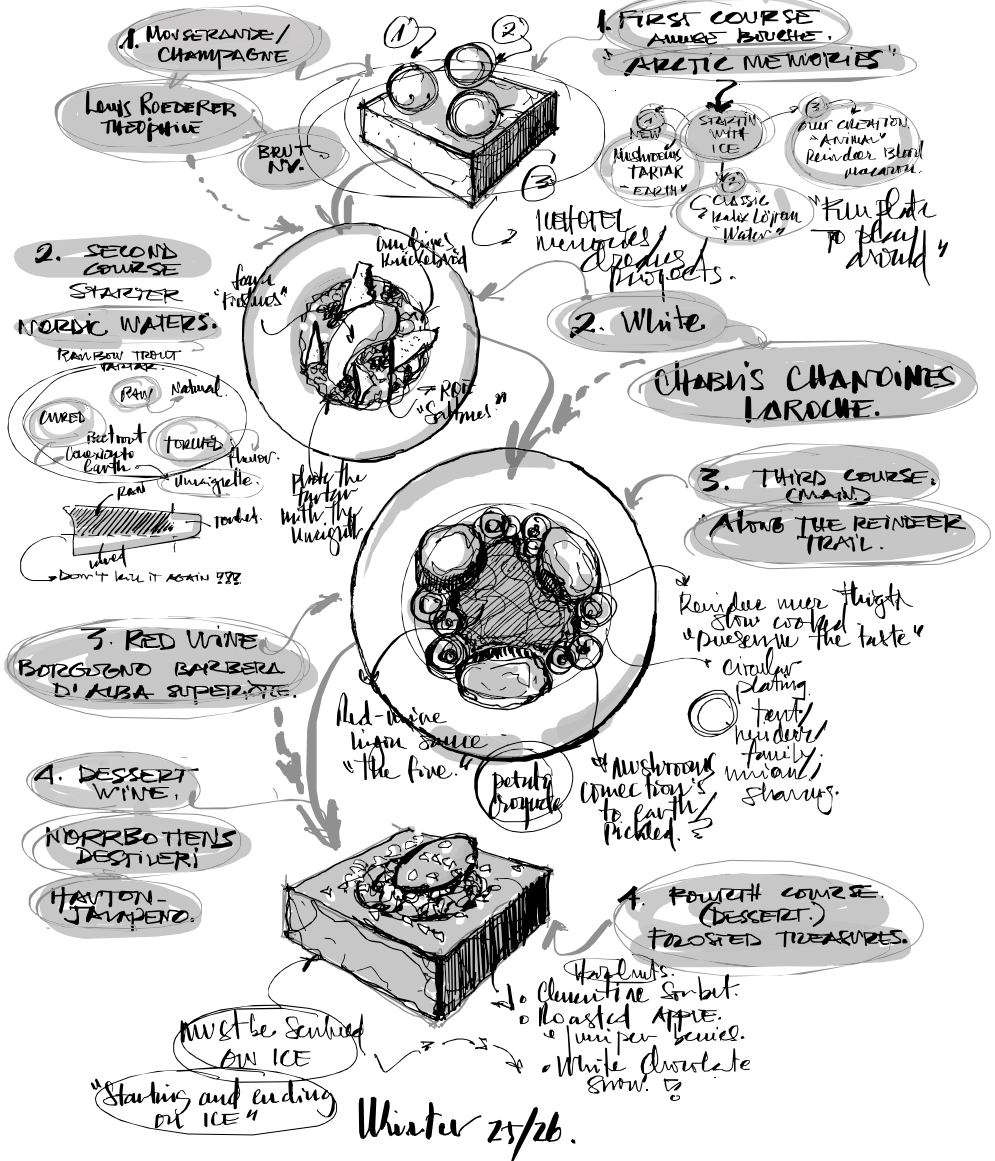 1. MOUSERANDE/
CHAMPAGNE
LOUIS ROEDERER
THEOPHILE
BRUT
NV.
1
2
3
1. FIRST COURSE
AMUSE BOUCHE.
"ARCTIC MEMORIES"
STARTIN
WITH
ICE
1
NEW
MUSHROOMS
TARTAR
"EARTH"
2
CLASSIC
Kalix Löjrom
"Water"
3
OUR CREATION
"ANIMAL"
Reindeer Blood
macaron.
"Fun plate
to play
around"
ICEHOTEL
memories/
projects.
2. SECOND
COURSE
STARTER
NORDIC WATERS.
RAINBOW TROUT
TARTAR.
RAW
Natural.
CURED
Beetroot
Connexion to
Earth
TORCHED
flavor.
Vinaigrette.
RAW
torched.
cured
DON'T kill it again ???
ROE
plate the
tartar
with the
2. White
CHABLIS CHANOINES
LAROCHE.
3. THIRD COURSE.
(MAIN)
"ALONG THE REINDEER
TRAIL.
Reindeer inner thigh
slow cooked
"preserve the taste"
circular
plating.
tent/
reindeer/
family.
union/
sharing.
3. RED WINE
BORGOGNO BARBERA
D'ALBA SUPERIORE.
Red-wine
lingon sauce
"The fire."
potato
croquete
Mushrooms
connection's
to earth/
Pickled.
4. DESSERT
WINE.
NORRBOTTENS
DESTILERI
HAVTORN-
JALAPENO.
4. FOURTH COURSE.
(DESSERT.)
FROSTED TREASURES.
Hazelnuts.
Clementine Sorbet.
Roasted APPLE.
juniper berries.
White chocolate
snow.
Must be served
ON ICE
"Starting and ending
on ICE"
Winter 25/26.